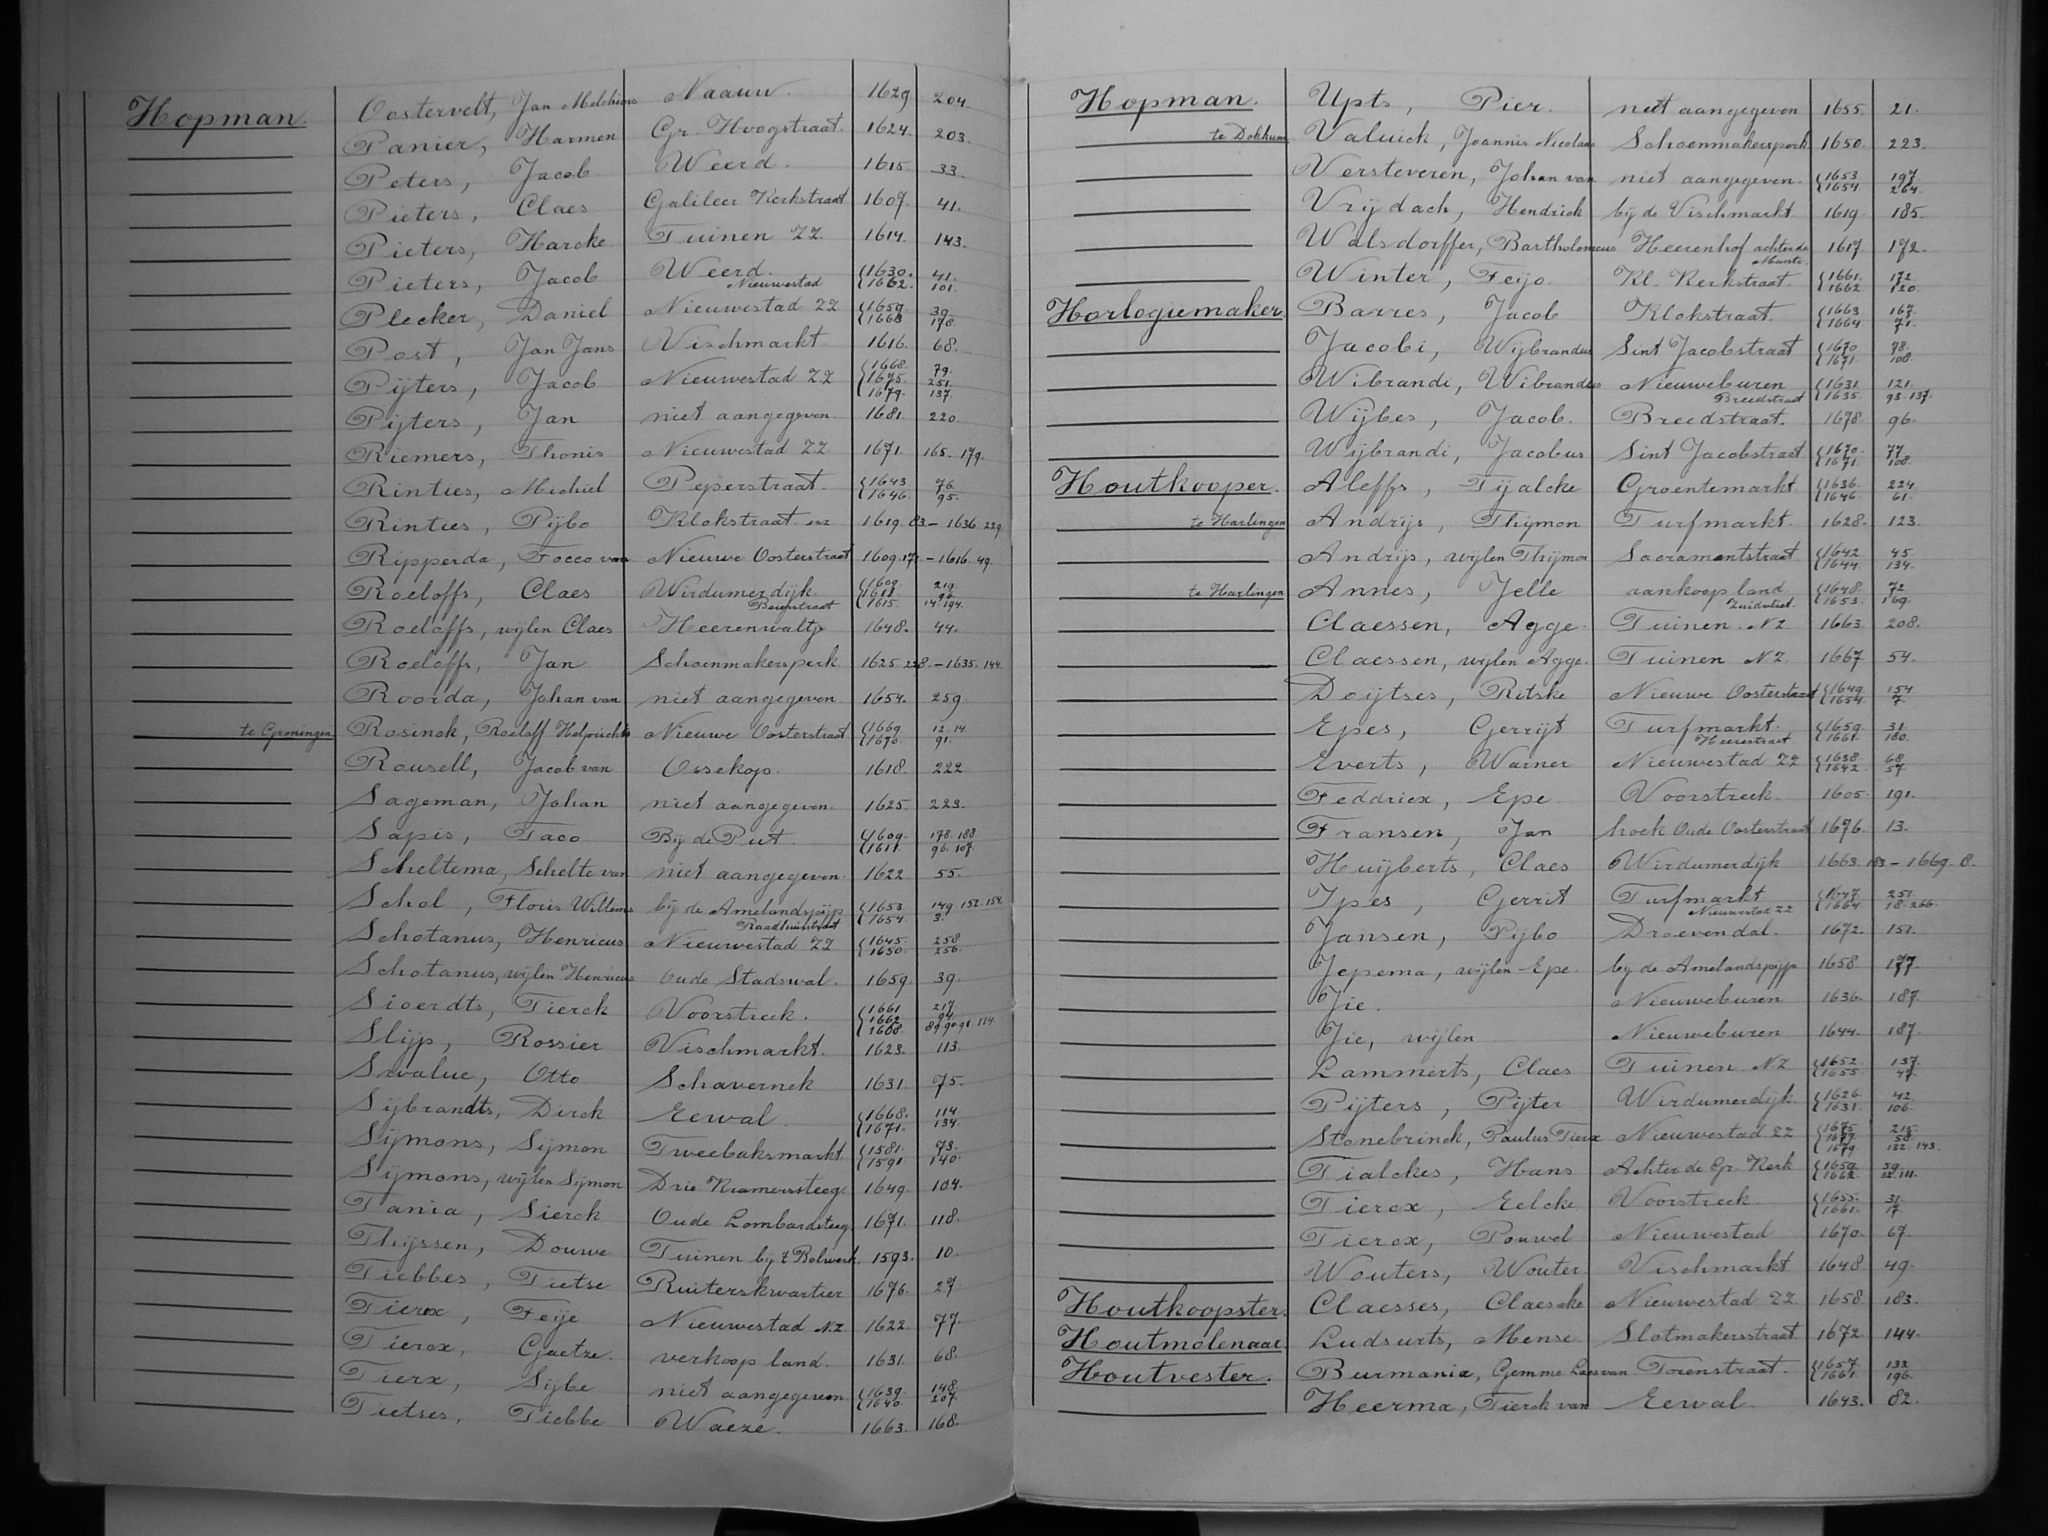 Hopman. Oostervelt, Jan Melchiors Naauw. 1629 204.
Panier, Harmen Gr. Hoogstraat. 1624. 203.
Peters, Jacob Weerd. 1615 33.
Pieters, Claes Galileer Kerkstraat 1607. 41.
Pieters, Harcke Tuinen ZZ. 1614. 143.
Pieters, Jacob Weerd. Nieuwestad {1630. 1662. 41. 101.
Plecker, Daniel Nieuwestad ZZ {1659. 1668 39. 178.
Post, Jan Jans Vischmarkt. 1616. 68.
Pijters, Jacob Nieuwestad ZZ {1668. 1675. 1679. 79. 251. 137.
Pijters, Jan niet aangegeven. 1681. 220.
Riemers, Thonis Nieuwestad ZZ 1671. 165. 179.
Rinties, Michiel Peperstraat. {1643 1646. 76. 95.
Rinties, Pijbo Klokstraat 1619. 83. – 1636. 229.
Ripperda, Focco van Nieuwe Oosterstraat 1609. 171. – 1616. 49.
Roeloffs, Claes Wirdumerdijk. {1609. 1611. 1615. 219.
Roeloffs, wijlen Claes Heerenwaltje 1648. 44.
Roeloffs, Jan Schoenmakersperk. 1625. 238. – 1635. 144.
Roorda, Johan van niet aangegeven. 1654. 259.
te Groningen Rosinck, Roeloff Nieuwe Oosterstraat {1669. 1670. 12. 14. 91.
Rousell, Jacob van Ossekop. 1618. 222
Sageman, Johan niet aangegeven. 1625. 223.
Sapis, Taco Bij de Put. {1609. 1611. 178. 188. 96. 107.
Scheltema, Schelte van niet aangegeven. 1622 55.
Schol, Floris Willems bij de Amelandspijp Raadhuisstraat {1653. 1654. 149. 152. 154. 3.
Schotanus, Henricus Nieuwestad ZZ {1645. 1650. 258. 256.
Schotanus, wijlen Henricus Oude Stadswal. 1659. 39.
Sioerdts, Tierck Voorstreek. {1661 1662 1668. 217. 94. 89. 90. 91. 114.
Slijp, Rossier Vischmarkt. 1623. 113.
Swalue, Otto Schavernek 1631. 75.
Sijbrandts, Dirck Eewal. {1668. 1671. 114 134.
Sijmons, Sijmon Tweebaksmarkt. {1581. 1591. 73. 140.
Sijmons, wijlen Sijmon Drie Kramerssteeg. 1649. 104.
Tania, Sierck Oude Lombardsteeg. 1671. 118.
Thijssen, Douwe Tuinen bij 't Bolwerk. 1593. 10.
Tiebbes, Tietse Ruiterskwartier 1676. 27.
Tierox, Feije Nieuwestad NZ. 1622. 77.
Tierox, Gaetze. verkoop land. 1631. 68.
Tierx, Sijbe niet aangegeven {1639. 1640. 148. 207.
Tietses, Tiebbe Waeze. 1663. 168.
Hopman. Upts, Pier. niet aangegeven 1655. 21.
te Dokkum Valuick, Joannis Nicolaas Schoenmakersperk 1650. 223.
Versteveren, Johan van niet aangegeven. {1653 1654 197. 264.
Vrijdach, Hendrick bij de Vischmarkt. 1619 185.
Walsdorffer, Bartholomeus Heerenhof achter de Munt. 1617. 172.
Winter, Feijo. Kl. Kerkstraat. {1661. 1662 172. 120.
Horlogiemaker Barres, Jacob Klokstraat. {1663 1664 167. 71.
Jacobi, Wijbrandus Sint Jacobstraat {1670 1671. 78. 108.
Wibrandi, Wibrandus Nieuweburen Breedstraat {1631. 1635. 121. 93. 137.
Wijbes, Jacob. Breedstraat. 1678. 96.
Wijbrandi, Jacobus Sint Jacobstraat {1670. 1671. 77. 108.
Houtkooper. Aleffs, Tijalcke Groentemarkt. {1636. 1646. 224. 61.
te Harlingen Andrijs, Thijmon Turfmarkt. 1628. 123.
Andrijs, wijlen Thijmon Sacramentstraat {1642 1644. 45 134.
te Harlingen Annes, Jelle aankoop land Zuidvliet. {1648. 1653. 72. 169.
Claessen, Agge Tuinen NZ 1663. 208.
Claessen, wijlen Agge. Tuinen NZ. 1667 54.
Doijtses, Ritske Nieuwe Oosterstraat {1649. 1654. 154. 7.
Epes, Gerrijt Turfmarkt. Heerestraat {1659. 1661. 31. 180.
Everts, Warner Nieuwestad ZZ {1638. 1642. 68. 57.
Feddricx, Epe Voorstreek. 1605. 191.
Fransen, Jan hoek Oude Oosterstraat 1676. 13.
Huijberts, Claes Wirdumerdijk 1663. 183 – 1669. 8.
Ipes, Gerrit Turfmarkt Nieuwestad ZZ {1647. 1664. 251. 18. 266.
Jansen, Pijbo Droevendal. 1672. 151.
Jepema, wijlen Epe. bij de Amelandspijp 1658. 177.
Jie. Nieuweburen 1636. 187.
Jie, wijlen Nieuweburen 1644. 187.
Lammerts, Claes Tuinen NZ {1652. 1655. 137. 47.
Pijters, Pijter Wirdumerdijk. {1626. 1631. 42. 106.
Stonebrinck, Paulus Tierx Nieuwestad ZZ {1675. 1677. 1679. 215. 58. 132. 143.
Tialckes, Hans Achter de Gr. Kerk {1659. 1662. 39. 32. 111.
Tierox, Eelcke Voorstreek {1655. 1661. 31. 17.
Tierox, Pouwel Nieuwestad 1670. 67.
Wouters, Wouter. Vischmarkt 1648 49.
Houtkoopster. Claesses, Claescke Nieuwestad ZZ. 1658. 183.
Houtmolenaar. Ludsurts, Mense Slotmakersstraat 1672. 144.
Houtvester. Burmania, Gemme Laes van Torenstraat. {1657. 1661. 133. 196.
Heerma, Tierck van Eewal 1643. 82.